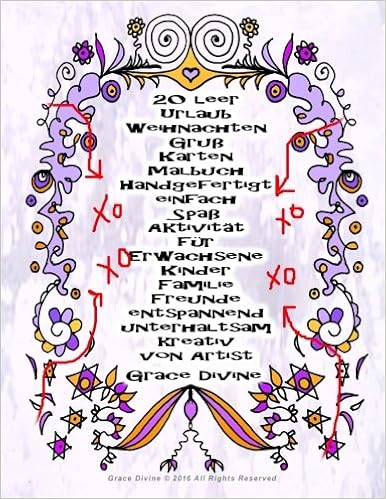 20 Leer
Urlaub
Weihnachten
Gruß
Karten
Malbuch
Handgefertigt
einfach
Spaß
Aktivität
Für
Erwachsene
Kinder
Familie
Freunde
entspannend
unterhaltsam
kreativ
von Artist
Grace Divine
XO
XO
XO
XO
Grace Divine © 2016 All Rights Reserved